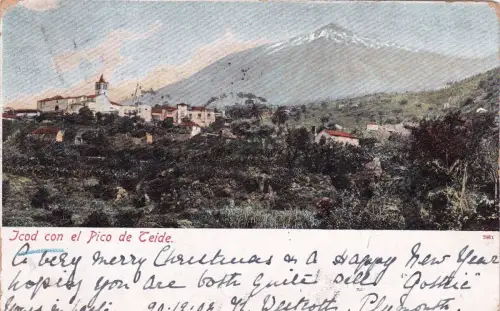 Icod con el Pico de Teide.
3981
A very merry Christmas & a Happy New Year
hoping you are both quite well "Gothic"
Yours in haste W Westcott, Plymouth